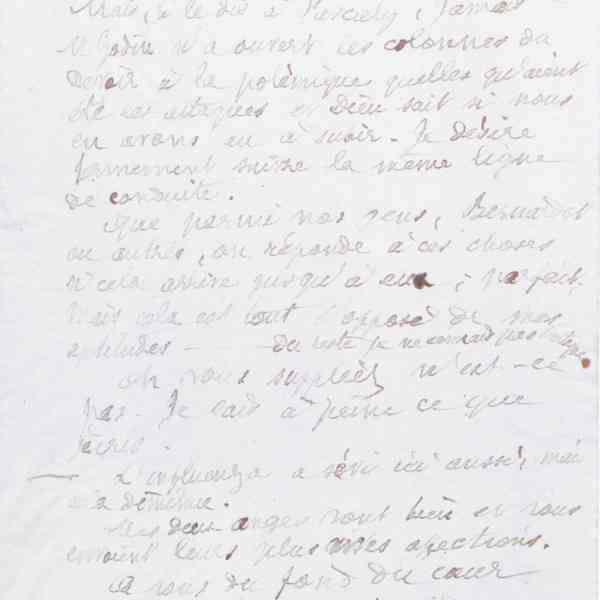 Mais, je le dis à Pascaly, jamais
M. Godin n'a ouvert les colonnes du
Devoir à la polémique quelles qu'aient
été les attaques et Dieu sait si nous
en avons eu à subir. Je désire
fermement suivre la même ligne
de conduite.
Que parmi nos gens, Bernardot
ou autres, on réponde à ces choses
si cela arrive jusqu'à eux ; parfait.
Mais cela est tout l'opposé de mes
aptitudes — Du reste je ne connais pas
oh vous suppléez n'est-ce
pas. Je sais à peine ce que
j'écris.
— L'influenza a sévi ici aussi, mais
a diminué.
Mes deux anges vont bien et vous
envoient leurs plus vives affections.
A vous du fond du cœur